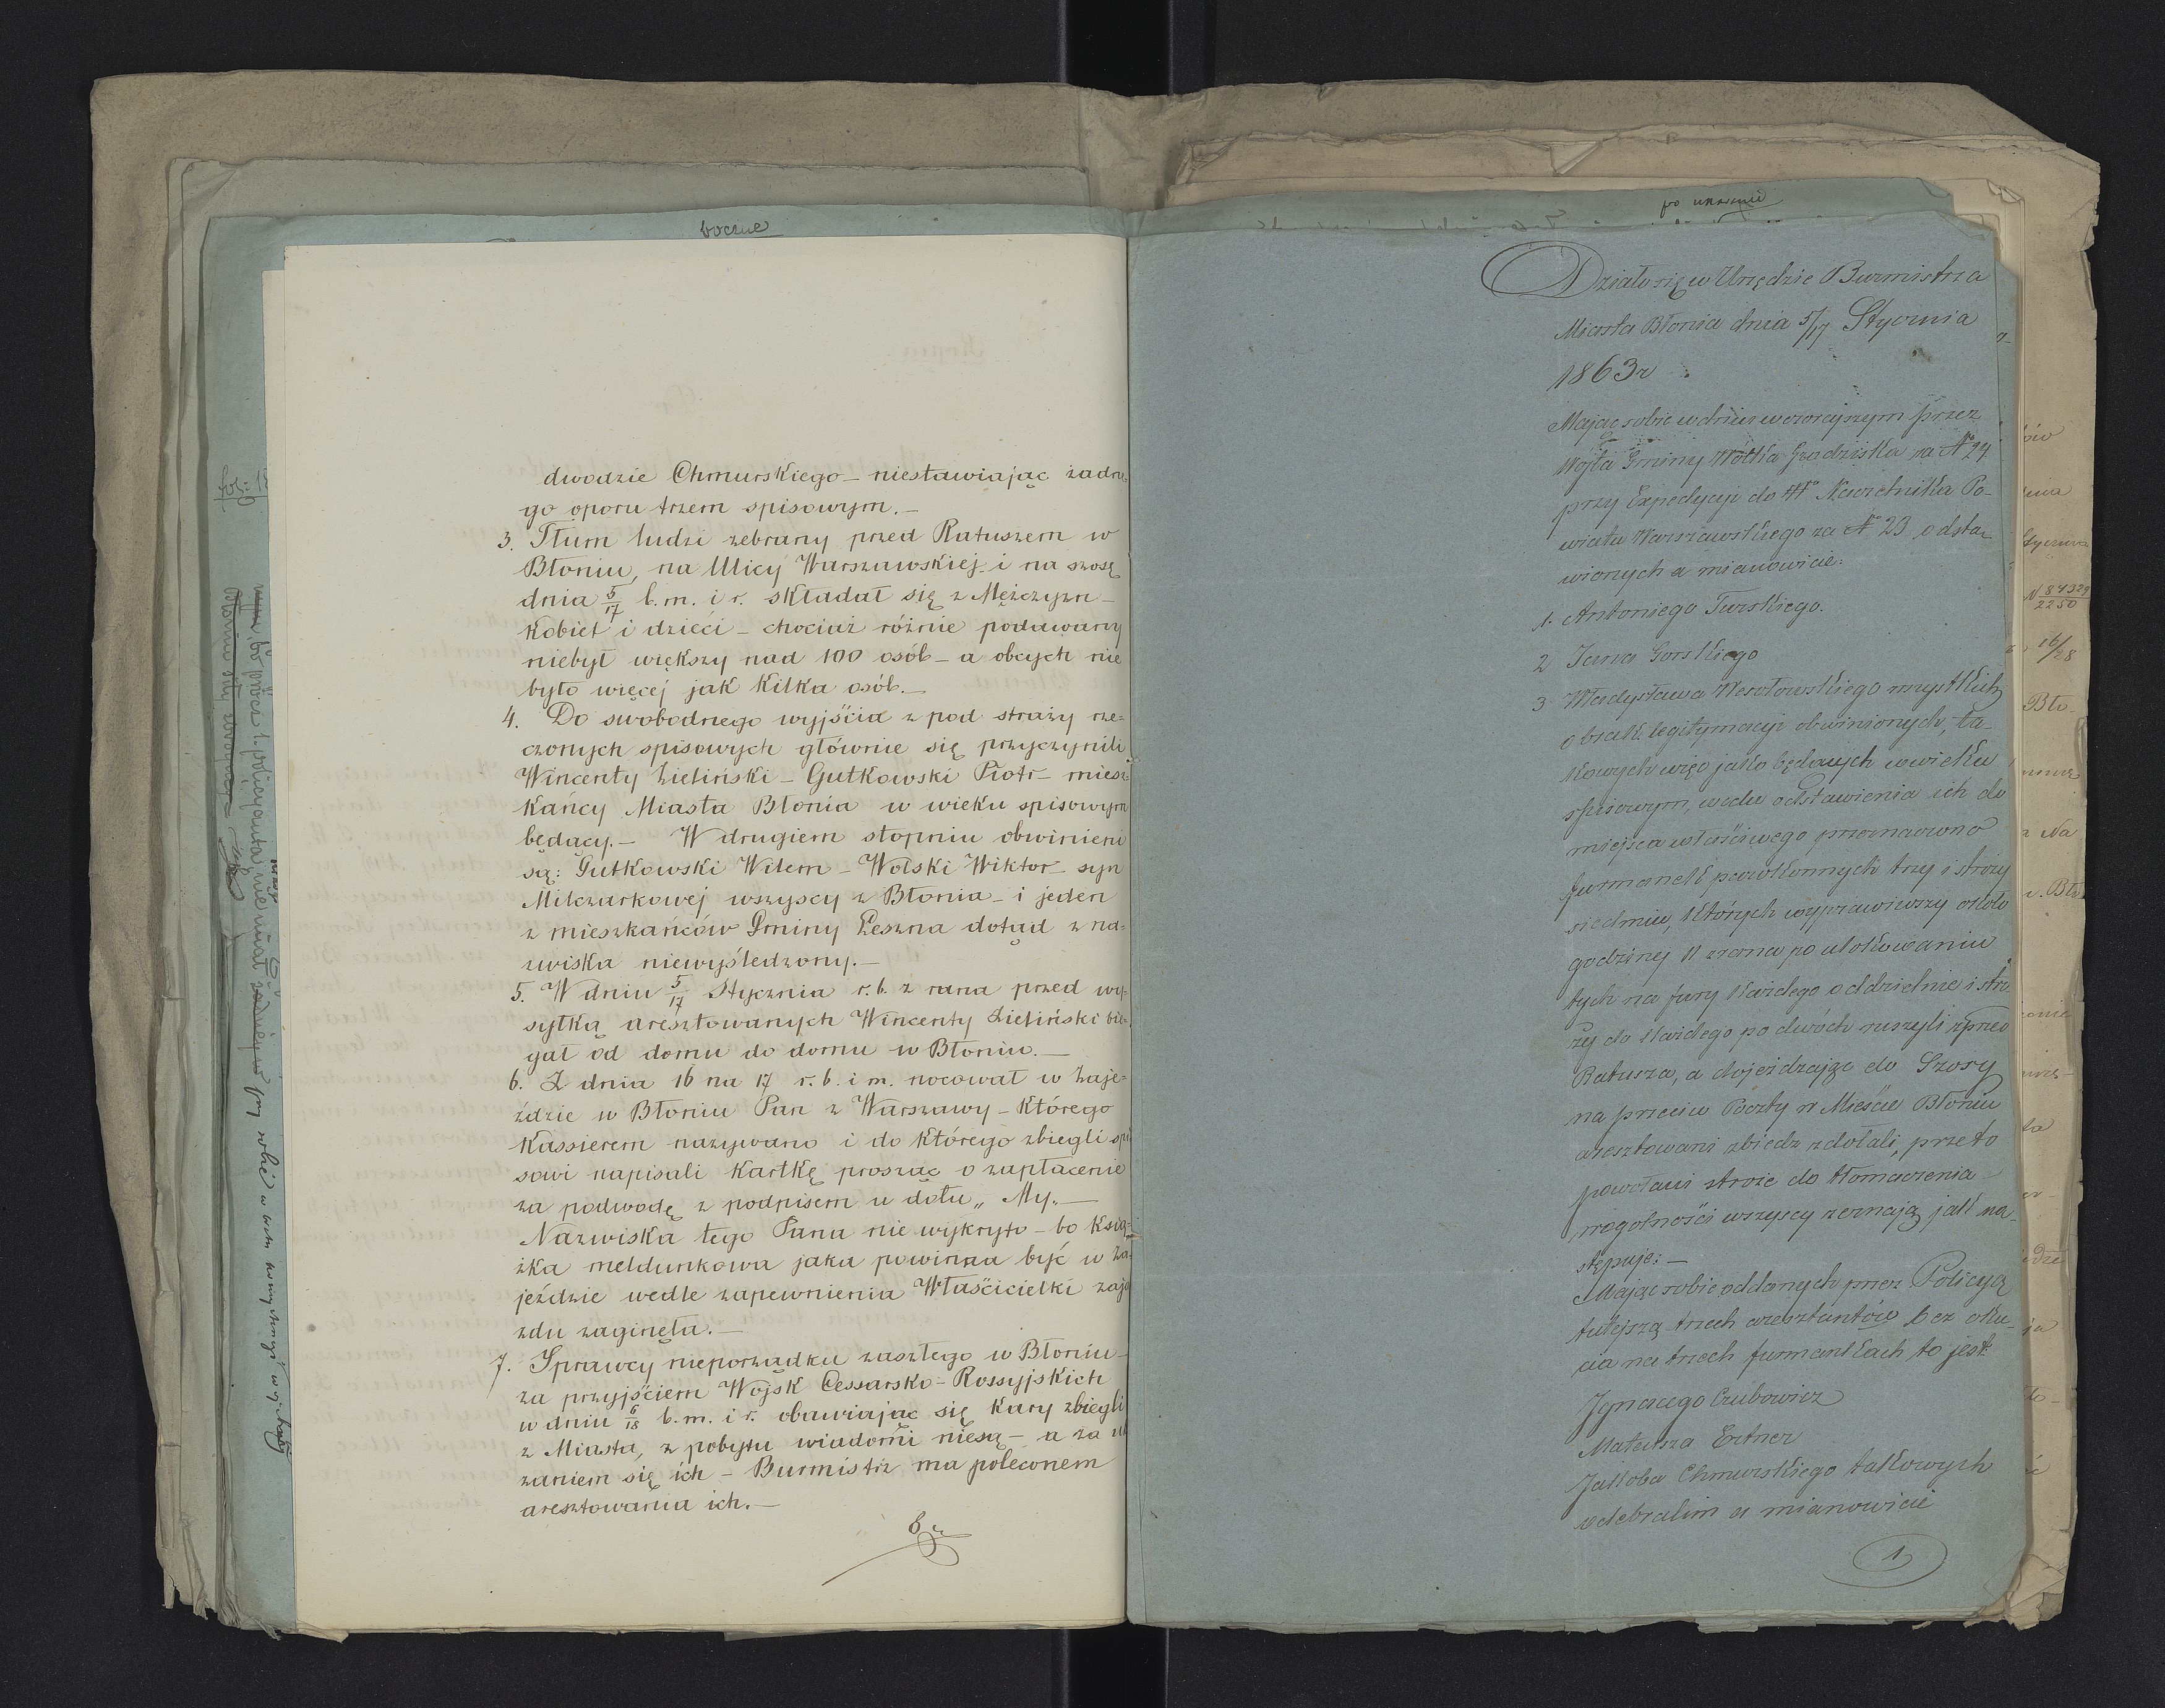 boczne
dwodzie Chmurskiego – niestawiając żadne=
go oporu trzem spisowym. –
3. Tłum ludzi zebrany przed Ratuszem w
Błoniu, na Ulicy Warszawskiej i na szosę
dnia 5/17 b. m. i r. składał się z Mężczyzn –
Kobiet i dzieci – chociaż różnie podawany
niebył większy nad 100 osób – a obcych nie
było więcej jak Kilka osób. –
4. Do swobodnego wyjścia z pod straży rze=
czonych spisowych głównie się przyczynili
Wincenty Zieliński – Gutkowski Piotr – miesz
Kańcy Miasta Błonia w wieku spisowym
będący. – W drugiem stopniu obwinieni
są: Gutkowski Wilem – Wolski Wiktor – syn
Milczarkowej wszyscy z Błonia – i jeden
z mieszkańców Gminy Leszna dotąd z na=
zwiska niewyśledzony. –
5. W dniu 5/17 Stycznia r. b. z rana przed wy=
syłką aresztowanych Wincenty Zieliński bie=
gał od domu do domu w Błoniu. –
6. Z dnia 16 na 17 r. b. i m. nocował w Zaje=
ździe w Błoniu Pan z Warszawy – Którego
Kassierem nazywano i do Którego zbiegli spi
sowi napisali Kartkę prosząc o zapłacenie
za podwodę z podpisem u dołu „ My „ –
Nazwiska tego Pana nie wykryto – bo Ksią=
żka meldunkowa jaka powinna być w Za=
jeździe wedle zapewnienia Właścicielki zaja
zdu zaginęła. –
7. Sprawcy nieporządku zaszłego w Błoniu –
za przyjściem Wojsk Cessarsko – Rossyjskich
w dniu 6/18 b. m. i r. obawiając się Kary zbiegli
z Miasta, z pobytu wiadomi niesą – a za u
zaniem się ich – Burmistrz ma poleconem
aresztowania ich. –
po
Działo się w Urzędzie Burmistrza
Miasta Błonia dnia 5/17 Stycznia
1863 r
Mając sobie w dniu wczorajszym przez
Wójta Gminy Wólka Grodziska za No 24
przy Expedycji do Wo Naczelnika Po-
wiatu Warszawskiego za No 23 odsta-
wionych a mianowicie:
1. Antoniego Turskiego.
2 Jana Gorskiego
3 Władysława Wesołowskiego wszystkich
o brak legitymacji obwinionych, ta-
kowych więc jako będących w wieku
spisowym, w celu odstawienia ich do
miejsca właściwego przeznaczono
furmanek parokonnych trzy i stróży
siedmiu, których wyprawiwszy około
godziny 11 zrana po ulokowaniu
tych na fury każdego oddzielnie i stró
ży do każdego po dwóch ruszyli z przed
Ratusza, a dojeżdzając do Szosy
na przeciw Poczty w Mieście Błoniu
aresztowani zbiedz zdołali, przeto
powołani stróże do tłomaczenia
w ogolności wszyscy zeznają jak na-
stępuje: –
Mając sobie oddanych przez Policyą
tutejszą trzech aresztantów bez oku-
cia na trzech furmankach to jest:
Ignacego Czubowicz
Mateusza Ertner
Jakoba Chmurskiego takowych
odebralim a mianowicie
1
N 87329/2250
16/28
Bło-